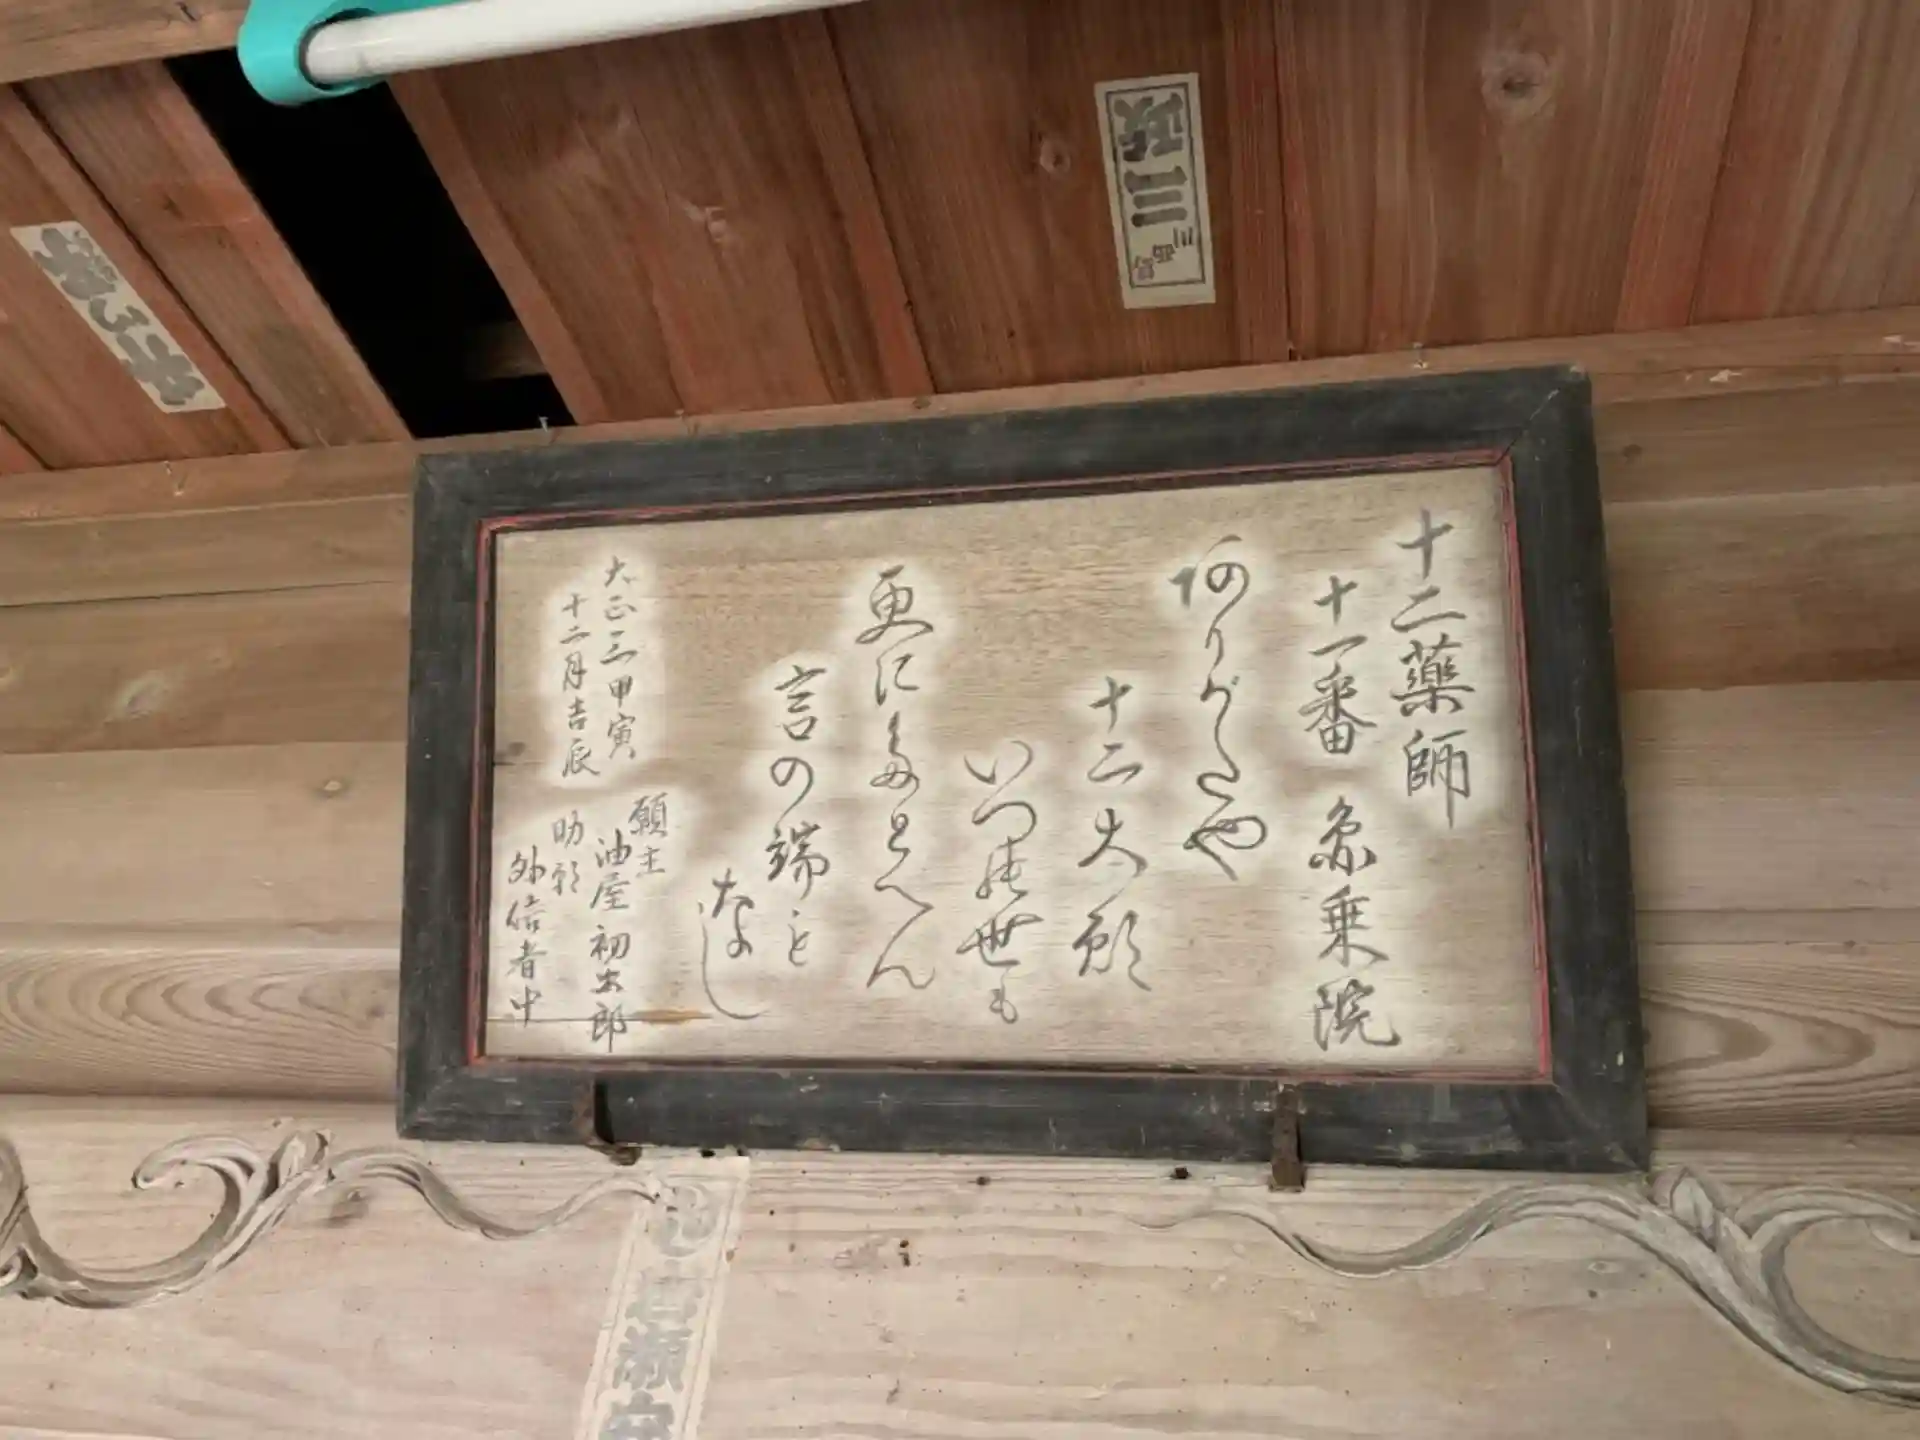 十二薬師
十一番 魚乗院
ありがたや
十二大願
いつの世も
更にたとへん
言の端も
なし
大正三甲寅
十二月吉辰
願主
油屋初太郎
助
外信者中
政三